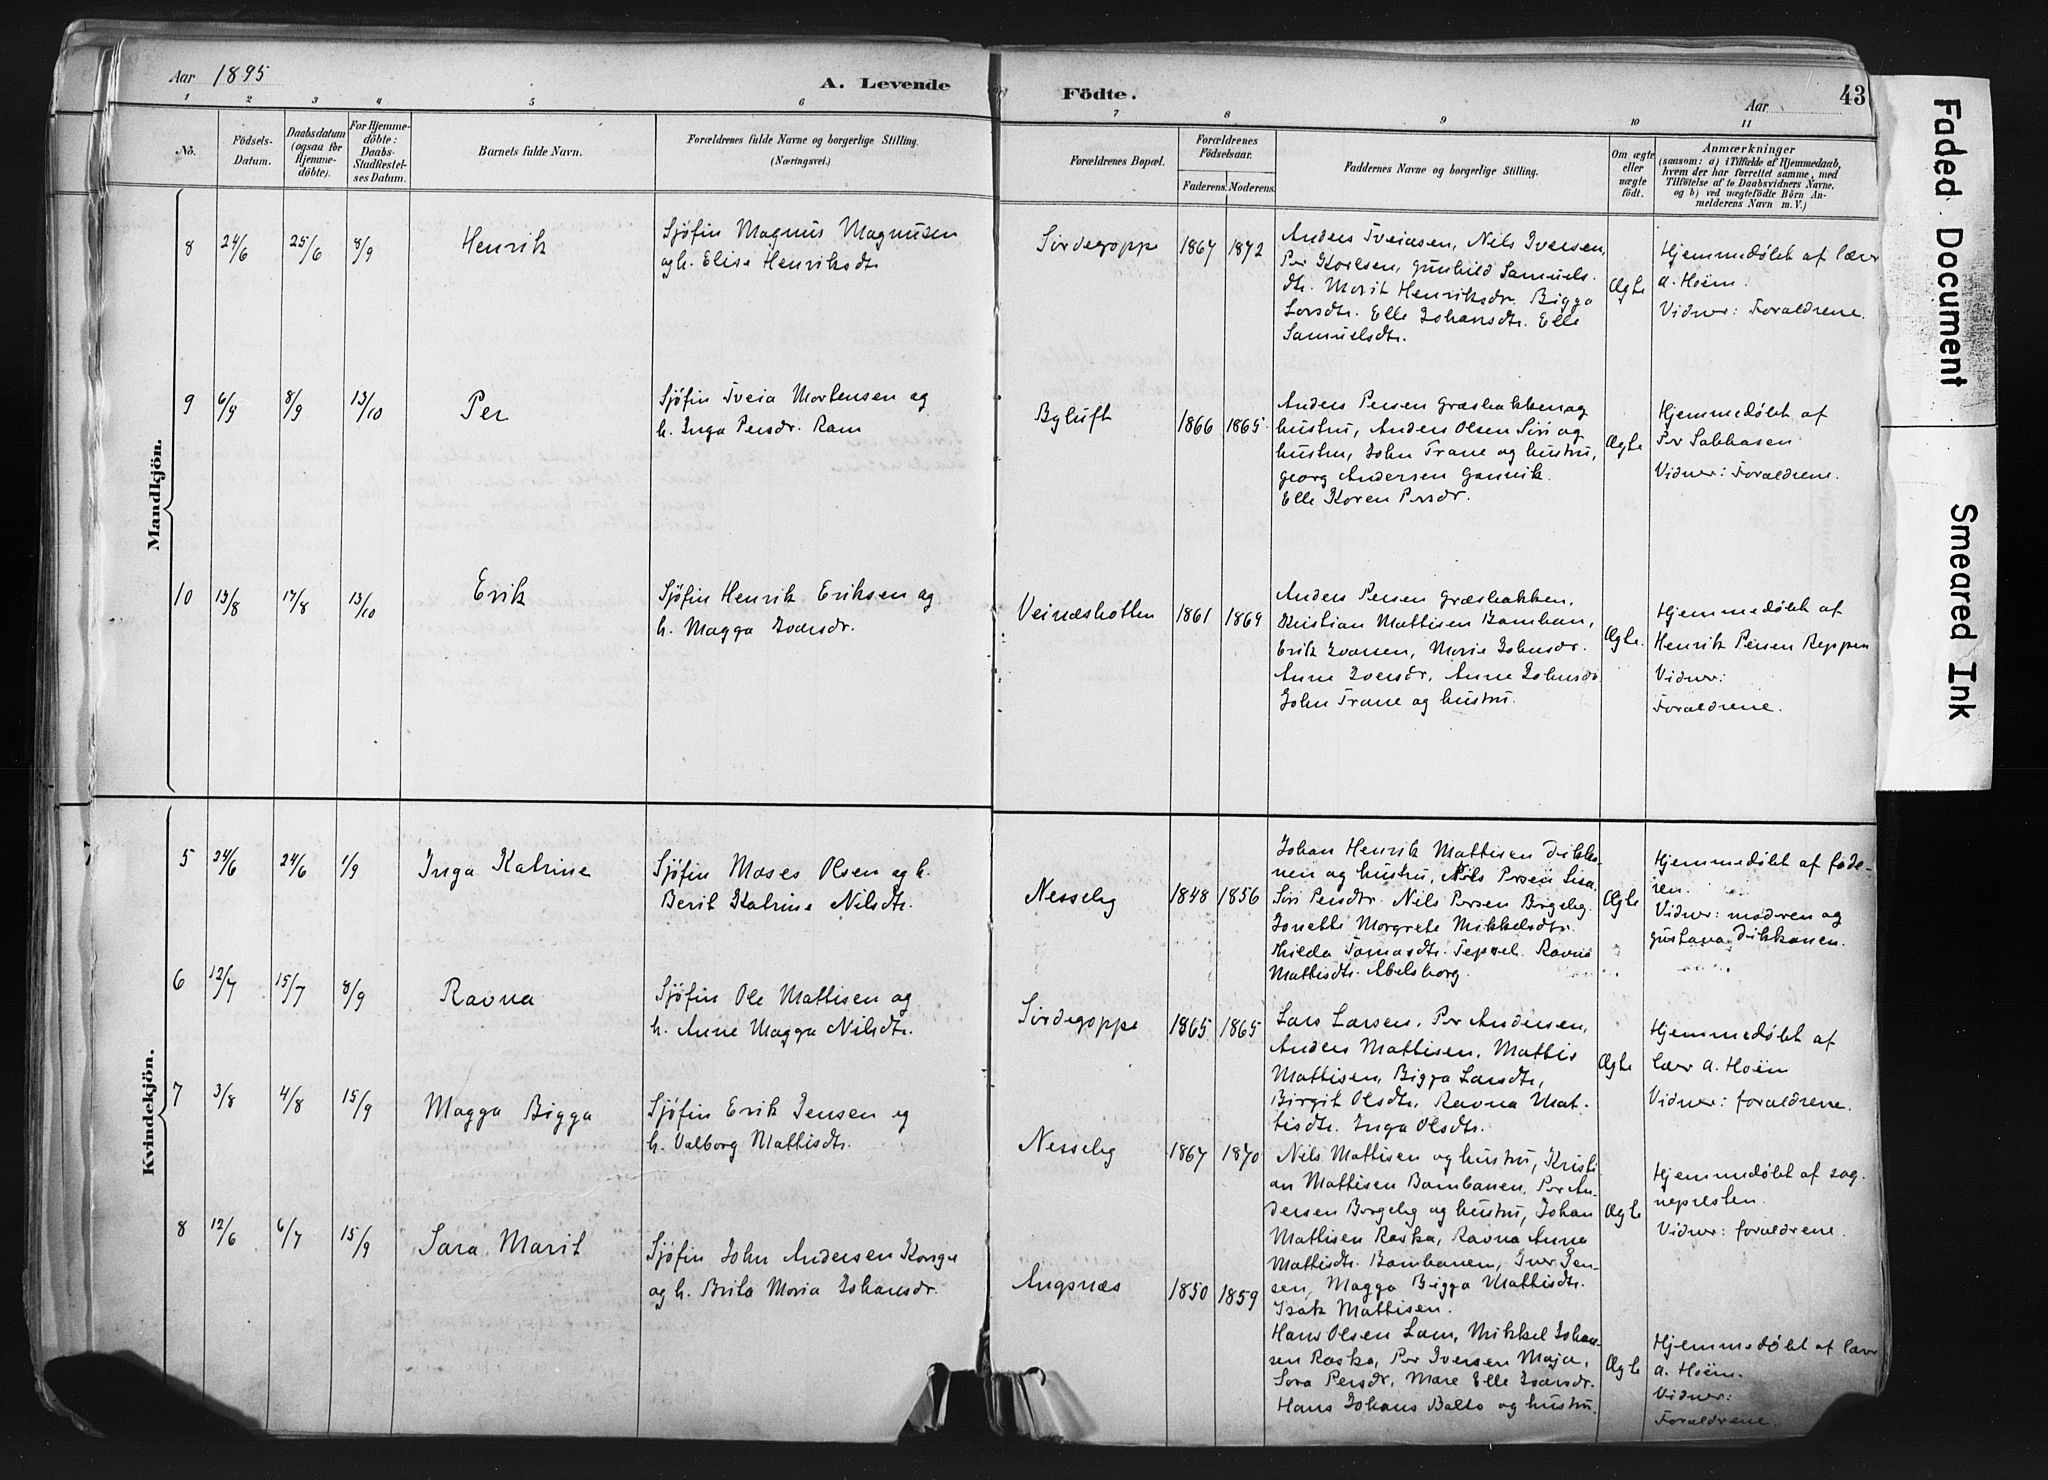 Aar 1895
A. Levende
Födte.
Aar
43
1 2 3 4 5 6 7 8 9 10 11
No.
Födsels-
Datum.
Daabsdatum
(ogsaa for
Hjemme-
döbte).
For Hjemme-
döbte:
Daabs-
Stadfæstel-
ses Datum.
Barnets fulde Navn.
Forældrenes fulde Navne og borgerlige Stilling.
(Næringsvei.)
Forældrenes Bopæl.
Forældrenes
Födselsaar.
Faderens. Moderens.
Faddernes Navne og borgerlige Stilling.
Om ægte
eller
uægte
födt.
Anmærkninger
(saasom: a) i Tilfælde af Hjemmedaab,
hvem der har forrettet samme, med
Tilföielse af to Daabsvidners Navne,
og b) ved uægtefödte Börn An-
melderens Navn m. V.)
Mandkjön.
8 24/6 25/6 8/9 Henrik
Sjøfin Magnus Magnusen
og h. Elise Henriksdtr
Sørdegoppe 1867 1872
Anders Tveiasen, Nils Iversen,
Per Karlsen, Gunhild Samuels-
dtr. Marit Henriksdr. Bigga
Larsdtr. Elle Johansdtr. Elle
Samuelsdtr.
Ægte
Hjemmedøbt af lærer
A. Hoëm.
Vidner: Foraldrene.
9 6/9 8/9 13/10 Per
Sjøfin Tveia Mortensen og
h. Inga Persdr. Ram
Byluft 1866 1865
Anders Persen Græsbakken og
hustru, Anders Olsen Siri og
hustru, John Trane og hustru,
Georg Andersen Garnvik.
Elle Karen Persdr.
Ægte
Hjemmedøbt af
Per Sabbasen
Vidner: Foraldrene.
10 13/8 17/8 13/10 Erik
Sjøfin Henrik Eriksen og
h. Magga Ivarsdr.
Veinæsholtm 1861 1869
Anders Persen Græsbakken,
Kristian Mattisen Bamban,
Erik Ivarsen, Marie Johnsdr.
Anne Iversdr, Anne Johnsdr
John Trane og hustru.
Ægte.
Hjemmedøbt af
Henrik Persen Reppen
Vidner:
Foraldrene.
Kvindekjön.
5 24/6 24/6 1/9 Inga Katrine
Sjøfin Moses Olsen og h.
Berit Katrine Nilsdtr.
Nesseby 1848 1856
Johan Henrik Mattisen Dikka-
nen og hustru, Nils Persen Lisa
Siri Persdtr. Nils Persen Bergeby.
Jonette Margrete Mikkelsdtr.
Hilda Tomasdtr. Teppel. Ravna
Mattisdtr. Abelsborg.
Ægte
Hjemmedøbt af fade-
ren.
Vidner: moderen og
Gustava Dikkanen.
6 12/7 15/7 8/9 Ravna
Sjøfin Ole Mattisen og
h. Anne Magga Nilsdtr.
Sørdegoppe 1865 1865
Lars Larsen, Per Andersen,
Anders Mattisen, Mattis
Mattisen, Bigga Larsdtr,
Birgit Olsdtr, Ravna Mat-
tisdtr. Inga Olsdtr.
Ægte
Hjemmedøbt af
lærer A. Hoëm
Vidner: foraldrene.
7 3/8 4/8 15/9 Magga Bigga
Sjøfin Erik Jensen og
h. Valborg Mattisdtr.
Nesseby 1867 1870
Nils Mattisen og hustru, Kristi-
an Mattisen Bambanen, Per An-
dersen Bergeby og hustru, Johan
Mattisen Raska, Ravna Anna
Mattisdtr. Bambanen, Iver Jen-
sen, Magga Bigga Mattisdtr.
Isak Mattisen.
Ægte
Hjemmedøbt af sog-
nepresten.
Vidner: foraldrene.
8 12/6 6/7 15/9 Sara Marit
Sjøfin John Andersen Konge
og h. Brita Maria Johansdr.
Angsnæs 1850 1859
Hans Olsen Lam, Mikkel Johan-
sen Raska, Per Iversen Maja,
Sara Persdr, Mare Elle Ivarsdr.
Hans Johans Balto og hustru.
Ægte
Hjemmedøbt af lærer
A. Hoëm.
Vidner:
Foraldrene.
Faded Document
Smeared Ink